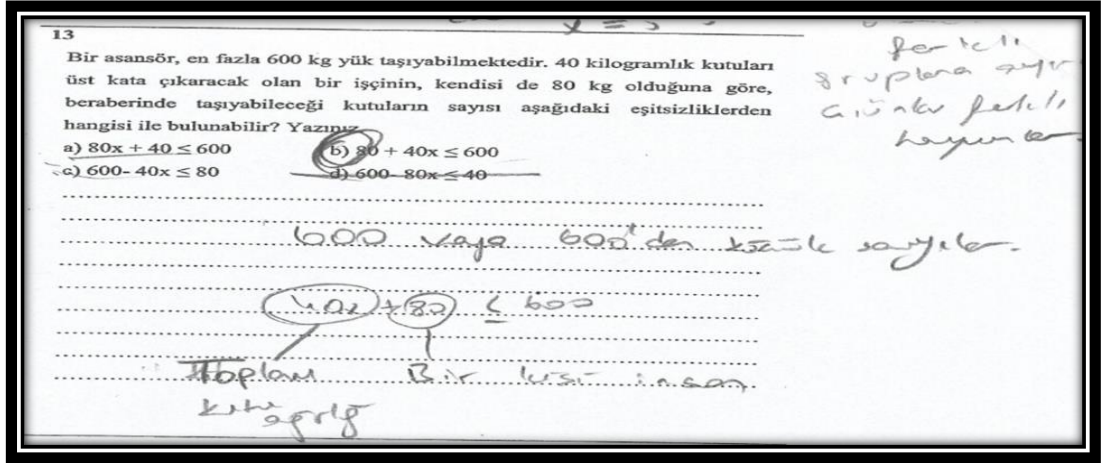 13
Bir asansör, en fazla 600 kg yük taşıyabilmektedir. 40 kilogramlık kutuları
üst kata çıkaracak olan bir işçinin, kendisi de 80 kg olduğuna göre,
beraberinde taşıyabileceği kutuların sayısı aşağıdaki eşitsizliklerden
hangisi ile bulunabilir? Yazınız.
a) 80x + 40 ≤ 600 b) 80 + 40x ≤ 600
c) 600- 40x ≤ 80 d) 600- 80x ≤ 40
600 veya 600'den küçük sayılar.
40x + 80 ≤ 600
Toplam Bir kişi insan
kutu
ağırlığı
farklı
gruplara
farklı